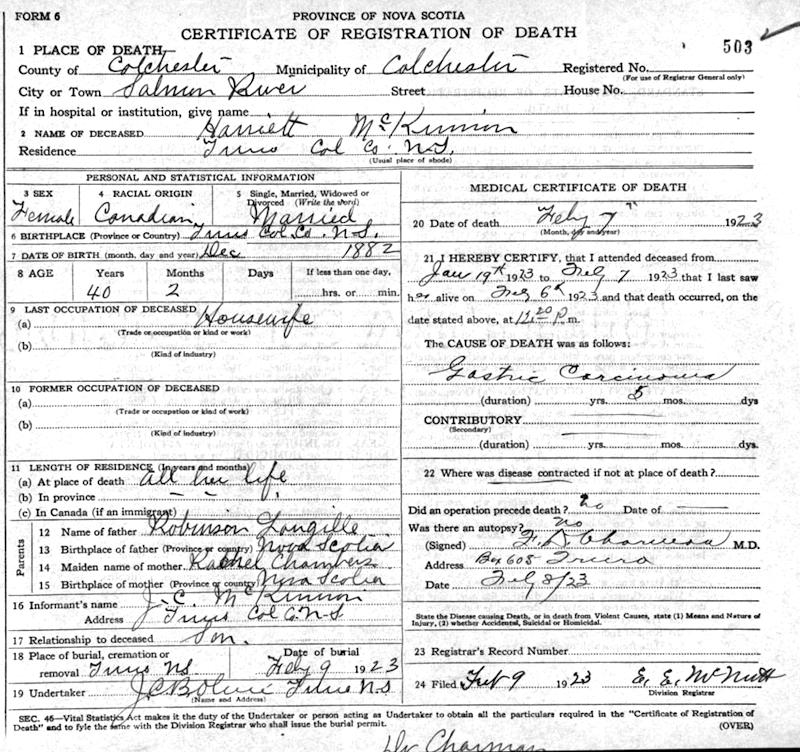 FORM 6
PROVINCE OF NOVA SCOTIA
CERTIFICATE OF REGISTRATION OF DEATH
503
1 PLACE OF DEATH—
County of Colchester Municipality of Colchester Registered No.
(For use of Registrar General only)
City or Town Salmon River Street House No.
If in hospital or institution, give name
2 NAME OF DECEASED Harriett McKinnon
Residence Truro Col Co. N.S.
(Usual place of abode)
PERSONAL AND STATISTICAL INFORMATION
3 SEX 4 RACIAL ORIGIN 5 Single, Married, Widowed or
Divorced (Write the word)
Female Canadian Married
6 BIRTHPLACE (Province or Country) Truro Col. Co. N.S.
7 DATE OF BIRTH (month, day and year) Dec 1882
8 AGE Years Months Days If less than one day,
40 2 hrs. or min.
9 LAST OCCUPATION OF DECEASED
(a) Housewife
(Trade or occupation or kind or work)
(b)
(Kind of industry)
10 FORMER OCCUPATION OF DECEASED
(a)
(Trade or occupation or kind of work)
(b)
(Kind of industry)
11 LENGTH OF RESIDENCE (In years and months)
(a) At place of death all her life
(b) In province — —
(c) In Canada (if an immigrant)
Parents
12 Name of father Robinson Langille
13 Birthplace of father (Province or country) Nova Scotia
14 Maiden name of mother Rachel Chambers
15 Birthplace of mother (Province or country) Nova Scotia
16 Informant's name J. C. McKinnon
Address Truro Col Co. N-S
17 Relationship to deceased Son.
18 Place of burial, cremation or Date of burial
removal Truro NS Feby 9 1923
19 Undertaker Truro NS
(Name and Address)
MEDICAL CERTIFICATE OF DEATH
20 Date of death Feby 7th 1923
(Month, day and year)
21 I HEREBY CERTIFY, that I attended deceased from
Jan 19th 1923 to Feby 7 1923 that I last saw
her alive on Feb 6th 1923 and that death occurred, on the
date stated above, at 11.20 p.m.
The CAUSE OF DEATH was as follows:
Gastric Carcinoma
(duration) yrs. 5 mos. dys
CONTRIBUTORY
(Secondary)
(duration) yrs. mos. dys
22 Where was disease contracted if not at place of death?
Did an operation precede death? no Date of
Was there an autopsy? no
(Signed) F. D. Charman M.D.
Address Box 605 Truro
Date Feb 8/23
State the Disease causing Death, or in death from Violent Causes, state (1) Means and Nature of
Injury, (2) whether Accidental, Suicidal or Homicidal.
23 Registrar's Record Number
24 Filed Feb 9 1923 E. E. McNutt
Division Registrar
SEC. 46—Vital Statistics Act makes it the duty of the Undertaker or person acting as Undertaker to obtain all the particulars required in the "Certificate of Registration of
Death" and to fyle the same with the Division Registrar who shall issue the burial permit.
(OVER)
Dr Charman